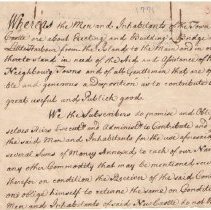 1771
Whereas the Men and Inhabitants of the Town
are about Erecting and Building a Bridge
Little Harbour from the Island to the Main and in or
thereto stand in need of the Aid and Assistance of the
Neighbouring Towns and of all Gentlemen that are of
and generous a Disposition as to contribute to
great useful and Publick good.
We the Subscribers do promise and
Selves Heirs Executors and Administrators to Contribute and
the said Men and Inhabitants for the use aforesaid
several Sums of Money Annexed to each of our Names
any other Commodity that may be mentioned
therefor on condition the Receiver of the said Com
oblige himself to return the same on Condition
Men and Inhabitants of said New Castle do not